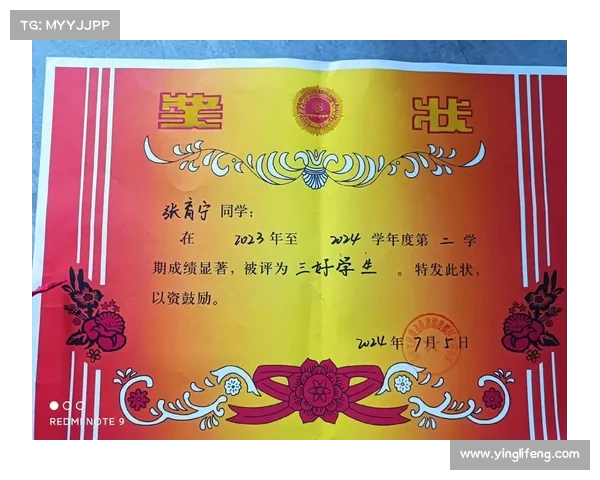 TG: MYYJJPP
奖 状
张育宁 同学:
在 2023 年至 2024 学年度第 二 学
期成绩显著，被评为 三好学生 。特发此状，
以资鼓励。
2024 年 7 月 5 日
REDMI NOTE 9
www.yinglifeng.com